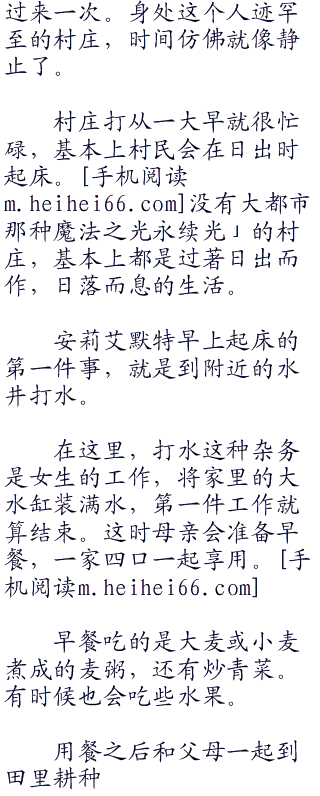 过来一次。身处这个人迹罕
至的村庄，时间仿佛就像静
止了。
村庄打从一大早就很忙
碌，基本上村民会在日出时
起床。[手机阅读
m.heihei66.com]没有大都市
那种魔法之光永续光」的村
庄，基本上都是过著日出而
作，日落而息的生活。
安莉艾默特早上起床的
第一件事，就是到附近的水
井打水。
在这里，打水这种杂务
是女生的工作，将家里的大
水缸装满水，第一件工作就
算结束。这时母亲会准备早
餐，一家四口一起享用。[手
机阅读m.heihei66.com]
早餐吃的是大麦或小麦
煮成的麦粥，还有炒青菜。
有时候也会吃些水果。
用餐之后和父母一起到
田里耕种